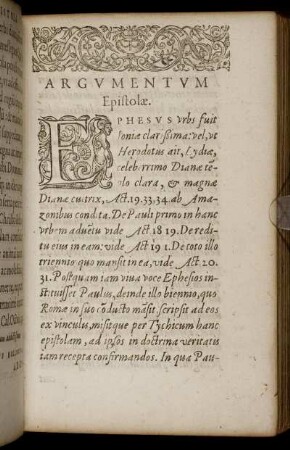 ARGVMENTVM
Epistolæ.
EPHESVS vrbs fuit
Ioniæ clarissima: vel, vt
Herodotus ait, Lydiæ,
celeberrimo Dianæ tē-
plo clara, & magnæ
Dianæ cultrix, Act. 19. 33. 34. ab Ama-
zonibus condita. De Pauli primo in hanc
vrbem aduētu vide Act 18 19. De redi-
tu eius in eam: vide Act 19 1. De toto illo
triennio quo mansit in ea, vide Act 20.
31. Postquam iam viua voce Ephesios in-
stituisset Paulus, deinde illo biennio, quo
Romæ in suo cōducto māsit, scripsit ad eos
ex vinculis, misitque per Tychicum hanc
epistolam, ad ipsos in doctrina veritatis
iam recepta confirmandos. In qua Pau-